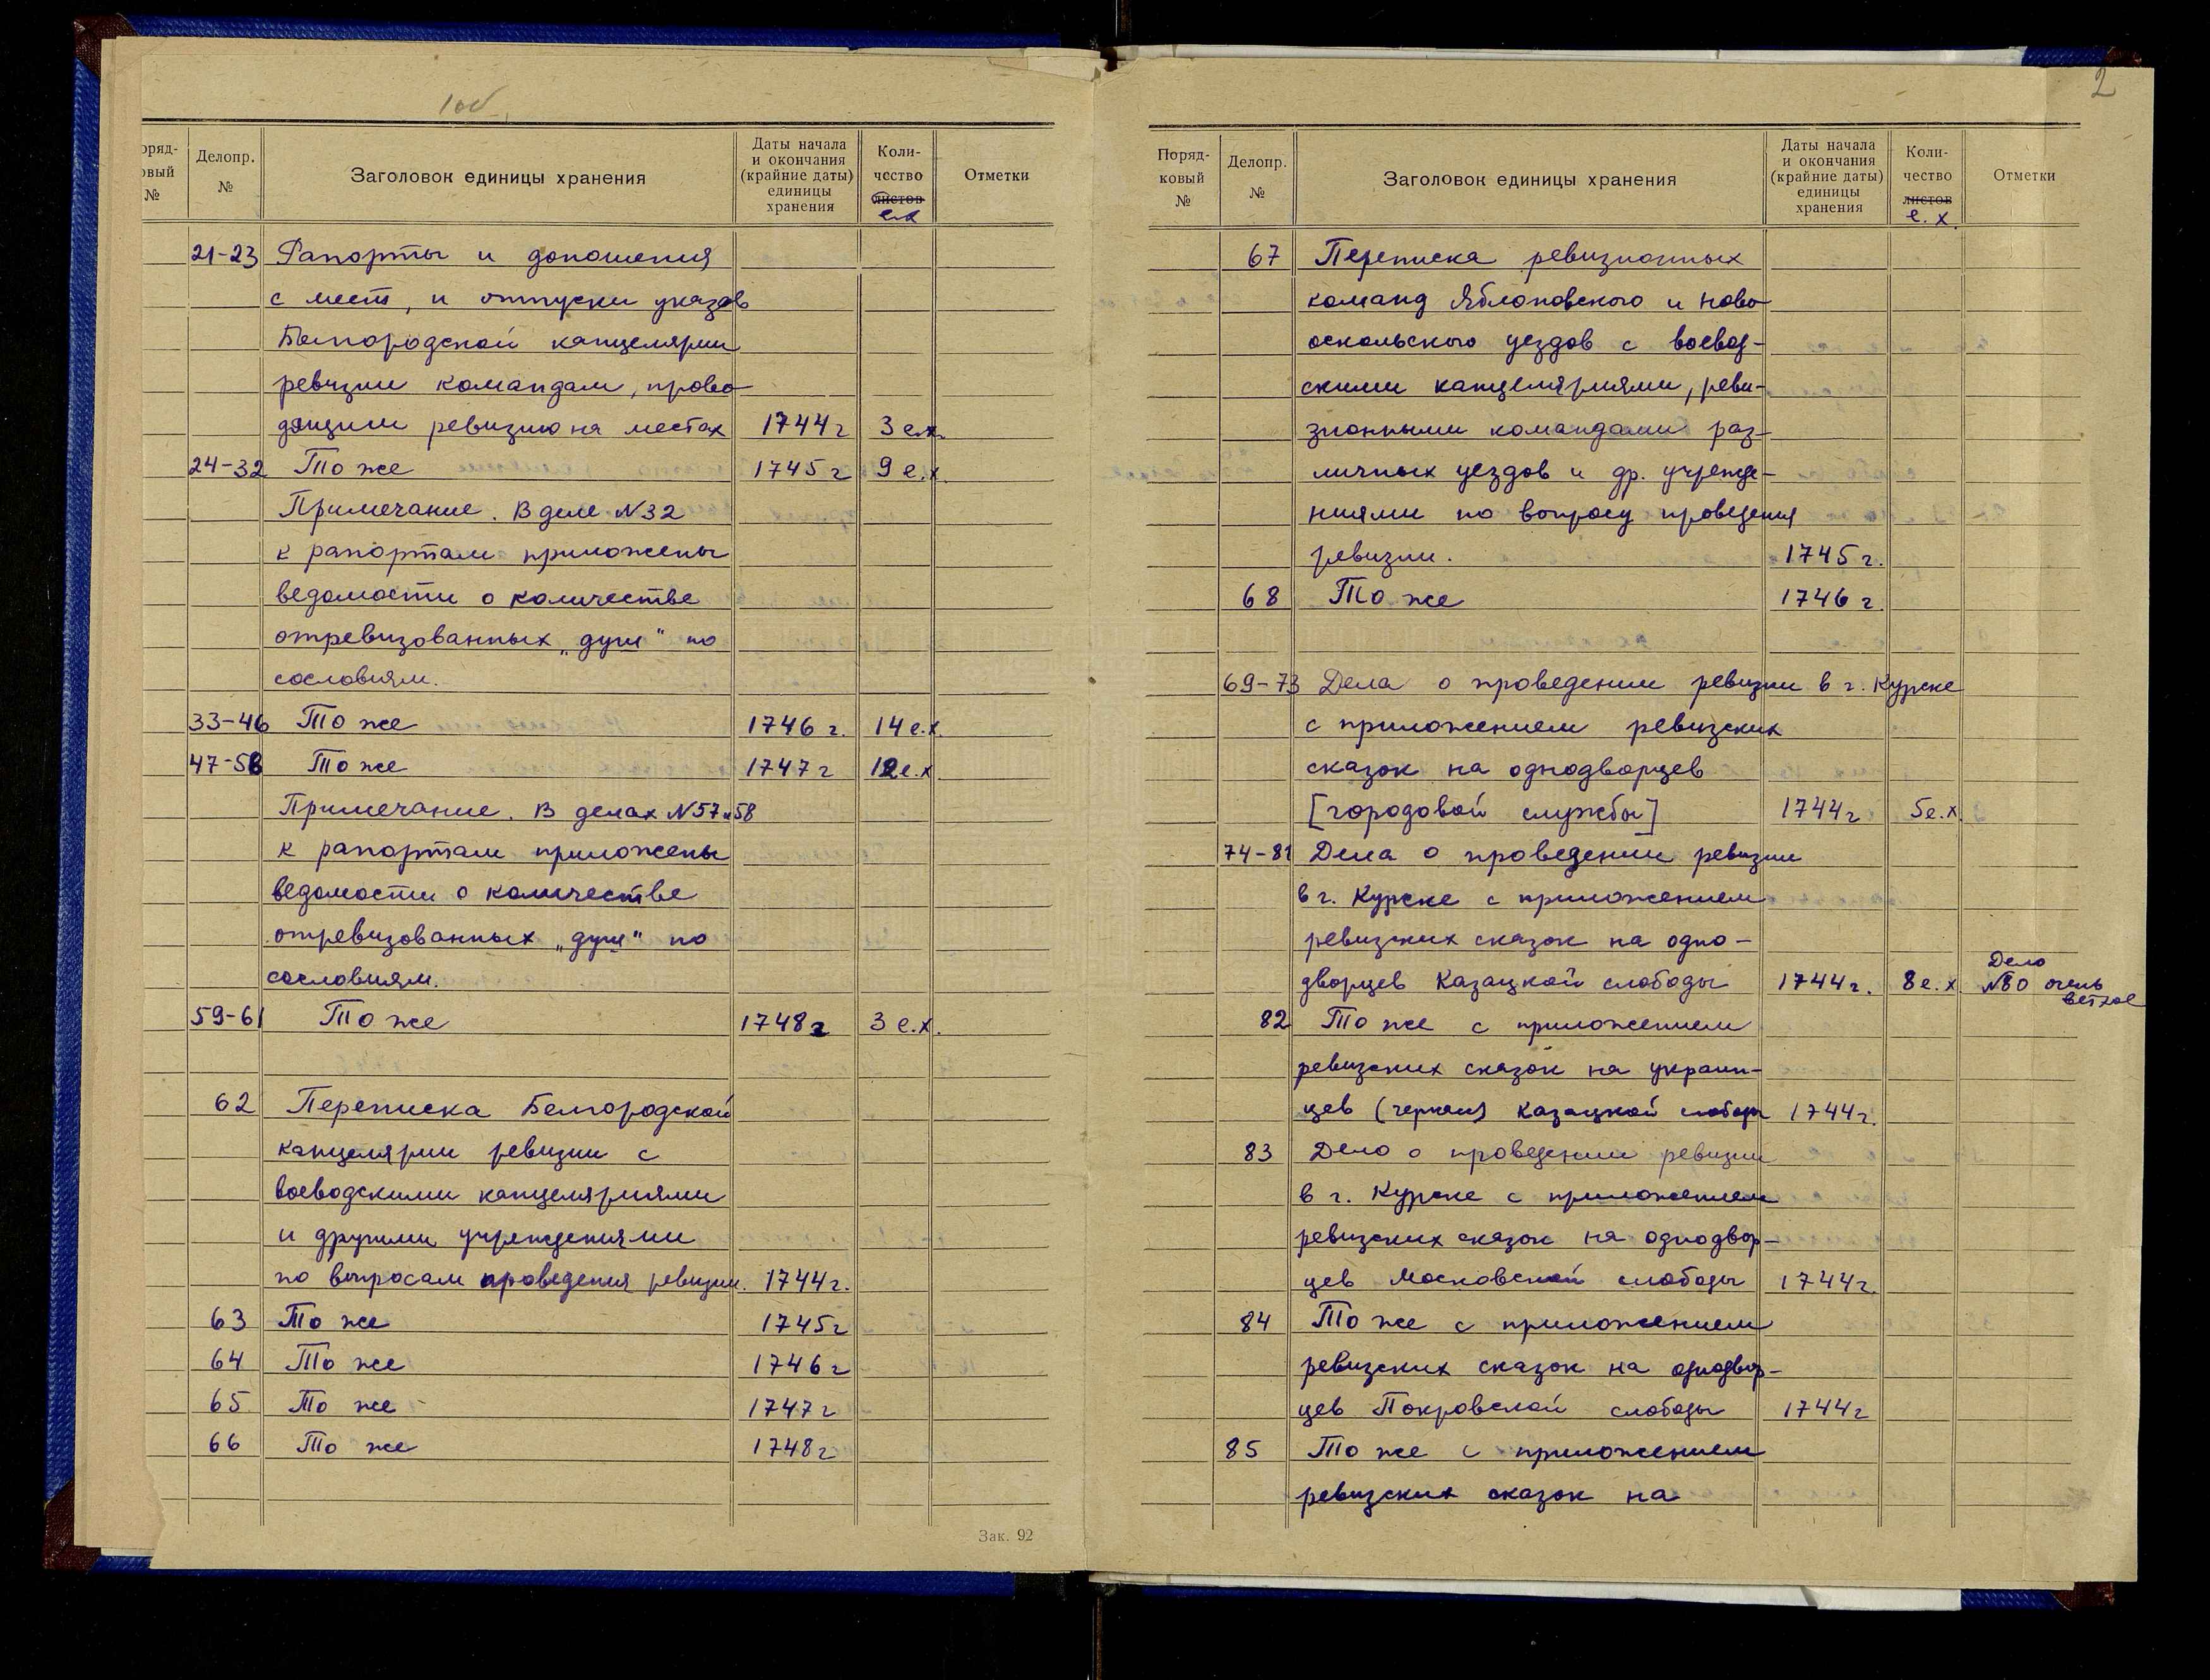 1об.
оряд-
овый
№
Делопр.
№
Заголовок единицы хранения
Даты начала
и окончания
(крайние даты)
единицы
хранения
Коли-
чество
листов
е.х
Отметки
21-23 Рапорты и доношения
с мест, и отпуски указов
Белгородской канцелярии
ревизии командам, прово-
дящим ревизию на местах 1744 г 3 е.х.
24-32 То же 1745 г 9 е.х.
Примечание. В деле №32
к рапортам приложены
ведомости о количестве
отревизованных „душ" по
сословиям.
33-46 То же 1746 г. 14 е.х.
47-58 То же 1747 г 12 е.х
Примечание. В делах №57 и 58
к рапортам приложены
ведомости о количестве
отревизованных „душ" по
сословиям.
59-61 То же 1748 г 3 е.х.
62 Переписка Белгородской
канцелярии ревизии с
воеводскими канцеляриями
и другими учреждениями
по вопросам проведения ревизии. 1744 г.
63 То же 1745 г
64 То же 1746 г
65 То же 1747 г
66 То же 1748 г
Зак. 92
2
Поряд-
ковый
№
Делопр.
№
Заголовок единицы хранения
Даты начала
и окончания
(крайние даты)
единицы
хранения
Коли-
чество
листов
е. х.
Отметки
67 Переписка ревизионных
команд Яблоновского и Ново-
оскольского уездов с воевод-
скими канцеляриями, реви-
зионными командами раз-
личных уездов и др. учрежде-
ниями по вопросу проведения
ревизии. 1745 г.
68 То же 1746 г.
69-73 Дела о проведении ревизии в г. Курске
с приложением ревизских
сказок на однодворцев
[городовой службы] 1744 г 5 е.х.
74-81 Дела о проведении ревизии
в г. Курске с приложением
ревизских сказок на одно-
дворцев Казацкой слободы 1744 г. 8 е.х Дело
№80 очень
ветхое
82 То же с приложением
ревизских сказок на украин-
цев (черкас) Казацкой слободы 1744 г.
83 Дело о проведении ревизии
в г. Курске с приложением
ревизских сказок на однодвор-
цев Московской слободы 1744 г.
84 То же с приложением
ревизских сказок на однодвор-
цев Покровской слободы 1744 г
85 То же с приложением
ревизских сказок на